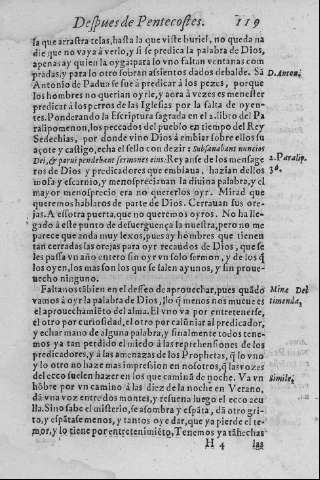 Despues de Pentecostes. 119
sa que arrastra telas, hasta la que viste buriel, no queda na
die que no vaya á verlo, y si se predica la palabra de Dios,
apenas ay quien la oyga: para lo vno saltan ventanas com
pradas, y para lo otro sobran assientos dados debalde. Sã
D. Anton.
Antonio de Padua se fue á predicar à los pezes, porque
los hombres no querian oyrle, y aora á vezes es menester
predicar á los perros de las Iglesias por la falta de oyen-
tes. Ponderando la Escriptura sagrada en el 2. libro del Pa
ralipomenon, los peccados del pueblo en tiempo del Rey
Sedechias, por donde vino Dios á embiar sobre ellos su
açote y castigo, echa el sello con dezir: Subsanabant nuncios
Dei, & parui pendebant sermones eius: Reyanse de los mensage
2. Paralip.
36.
ros de Dios y predicadores que embiaua, hazian dellos
mofa y escarnio, y menospreciauan la diuina palabra, y el
mayor menosprecio era no quererlos oyr. Mirad que
queremos hablaros de parte de Dios. Cerrauan sus ore-
jas. A essotra puerta, que no queremos oyros. No ha lle-
gado á este punto de desuerguença la nuestra, pero no me
parece que anda muy lexos, pues ay hombres que tienen
tan cerradas las orejas para oyr recaudos de Dios, que se
les passa vn año entero sin oyr vn solo sermon, y de los q̃
los oyen, los mas son los que se salen ayunos, y sin proue-
uecho ninguno.
Faltanos tãbien en el desseo de aprouechar, pues quãdo
Mina Del
vamos á oyr la palabra de Dios, lo q̃ menos nos mueue es
timenda,
el aprouechamiẽto del alma. El vno va por entretenerse,
el otro por curiosidad, el otro por caluniar al predicador,
y echar mano de alguna palabra, y finalmente todos tene-
mos ya tan perdido el miedo á las reprehensiones de los
predicadores, y à las amenazas de los Prophetas, q̃ lo vno
y lo otro no haze mas impression en nosotros, q̃ las vozes
del ecco suelen hazer en los que caminã de noche. Va vn
Simile,
hõbre por vn camino á las diez de la noche en Verano,
dá vna voz entre dos montes, y resuena luego el ecco acu
lla. Sino sabe el misterio, se asombra y espãta, dá otro gri-
to, y espãtase menos, y tantos oye dar, que ya pierde el te-
mor, y lo tiene por entretenimiẽto, Tenemos ya tã hechas
H 4 las